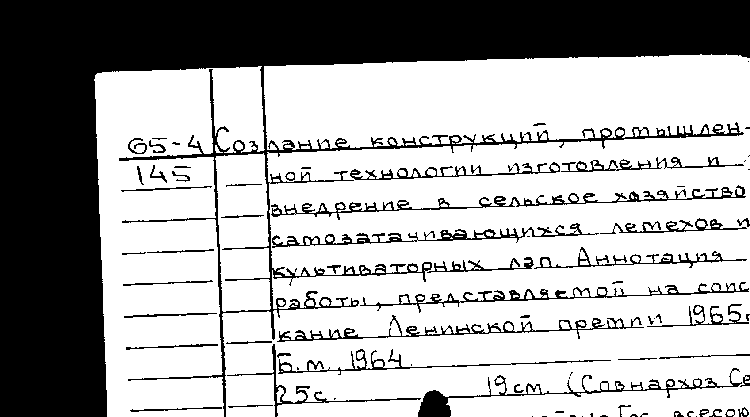 65-4 Создание конструкций, промышлен-
145 ной технологии изготовления и
внедрение в сельское хозяйство
самозатачивающихся лемехов и
культиваторных лап. Аннотация
работы, представляемой на соис-
кание Ленинской премии 1965г
Б.м., 1964.
25с. 19см. (Совнархоз Се